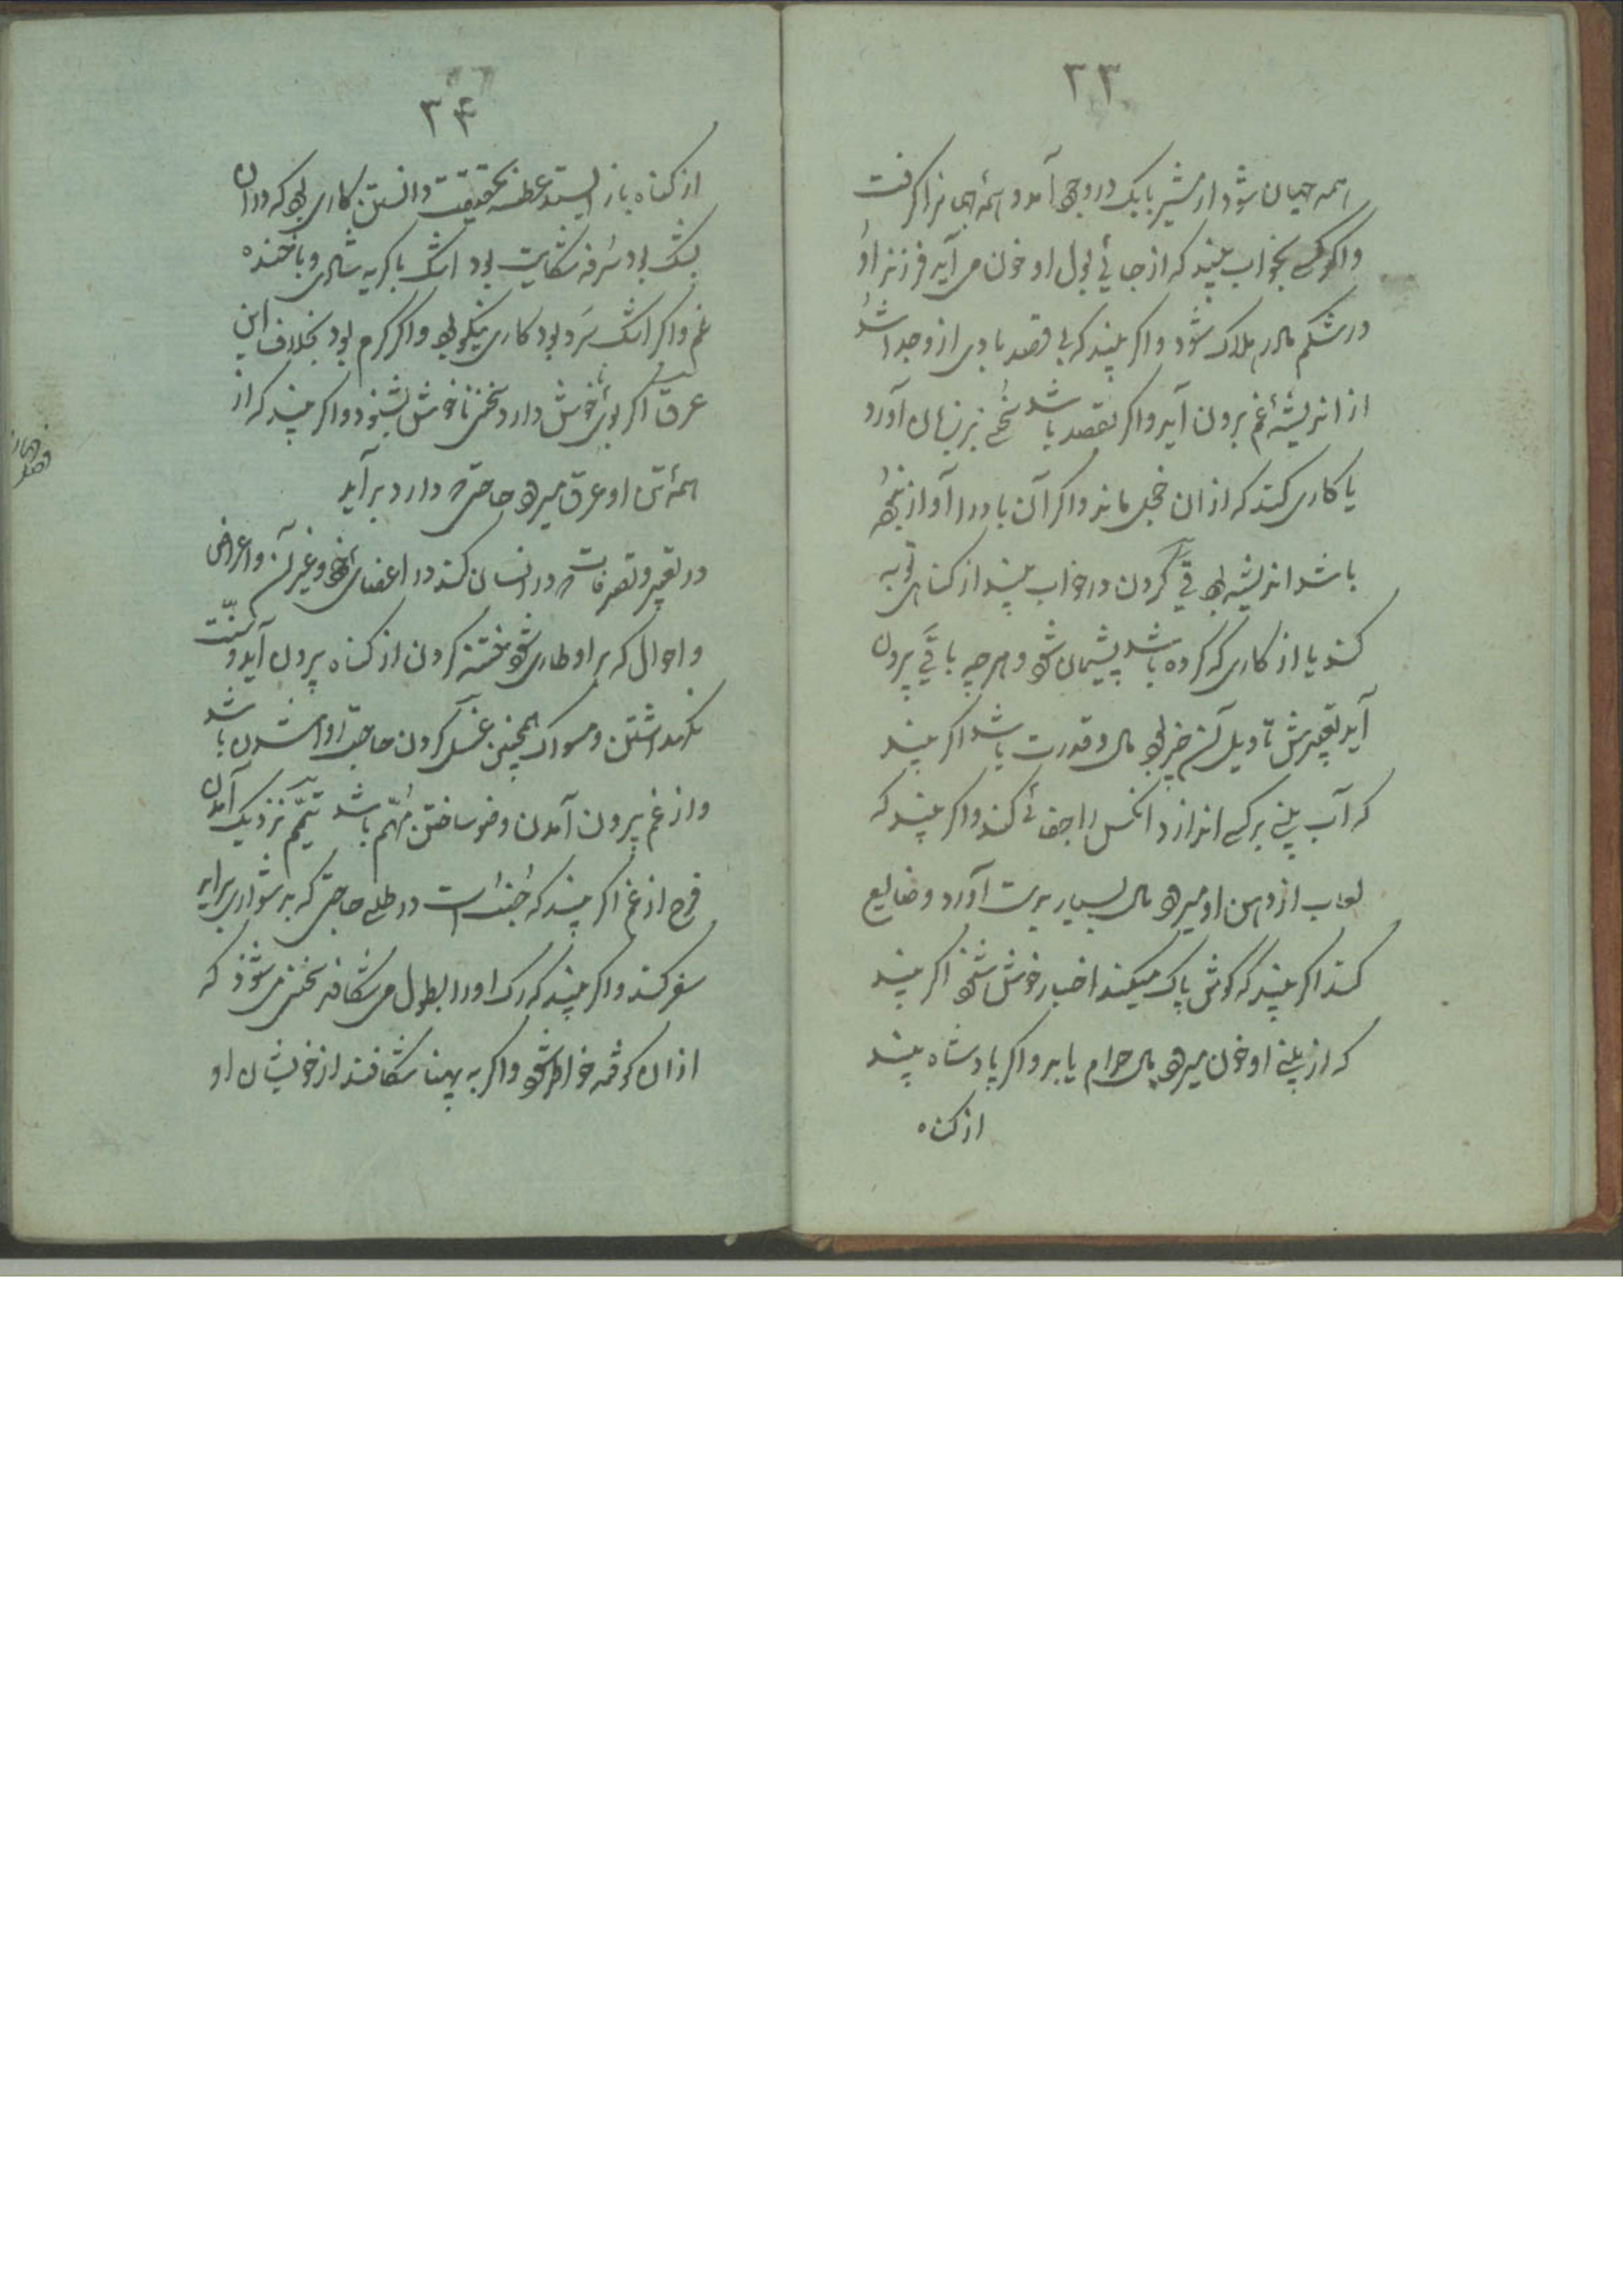 ۳۳
همه جهان شود اردشیر بابک در وجود آمد و همه جهانرا گرفت
واگر کسی بخواب بیند که از جائی بول او خون می آید فرزند او
در شکم مادر هلاک شود و اگر بیند که بی قصد بادی ازو جدا شد
از اندیشه غم برون آید و اگر بقصد باشد سخنی بر زبان آورد
یا کاری کند که از ان خجل ماند و اگر آن باد را آواز نبود
باشد اندیشه بود قی کردن در خواب بیند از گناهی توبه
کند یا از کاری که کرده باشد پشیمان شود و هرچه با قی برون
آید تعبیرش تاویل آن چیز بود مال و قدرت باشد اگر بیند
که آب بینی بر کسی اندازد انکس را جفائی کند و اگر بیند که
لعاب از دهن او میرود مال بسیار بدست آورد و ضایع
کند اگر بیند که گوش پاک میکند اخبار خوش شنود اگر بیند
که از بینی او خون میرود مال حرام یابد و اگر پادشاه بیند
از گناه
۳۴
از گناه باز ایستد عطسه بحقیقت دانستن کاری بود که در ان
بشک بود سرفه شکایت بود اشک با گریه شادی و با خنده
غم و اگر اشک سرد بود کاری نیکو بود و اگر گرم بود بخلاف این
عرق اگر بوی خوش دارد سخن ناخوش بشنود و اگر بیند که از
همه تن او عرق میرود حاجتی که دارد برآید
در تعبیر و تصرفات که در انسان کند در اعضای خود و غیر آن و اعراض
و احوال که بر او طاری شود ختنه کردن از گناه برون آید و سنت
نگهداشتن و مسواک همچنین غسل کردن حاجت روا شدن باشد
و از غم برون آمدن وضو ساختن مهم باشد تیمم نزدیک آمدن
فرح از غم اگر بیند که جنب است در طلب حاجتی که بدشواری برآید
سفر کند و اگر بیند که رگ او را بطول می شکافند سخنی می شنود که
از ان کوفته خواطر شود و اگر به پهنا شکافند از خویشان او